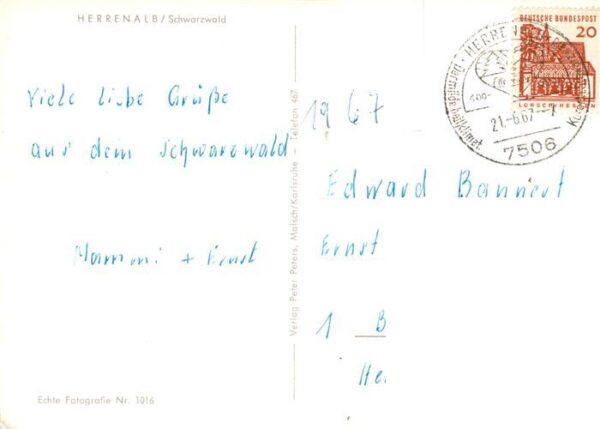 HERRENALB/Schwarzwald
Viele liebe Grüße
aus dem Schwarzwald
Mammi + Ernst
Echte Fotografie Nr. 1016
Verlag Peter Peters, Malsch/Karlsruhe – Telefon 467
DEUTSCHE BUNDESPOST
20
LORSCH/HESSEN
21.-6.67.-7
7506
1967
Edward Bannert
Ernst
1 B
He.